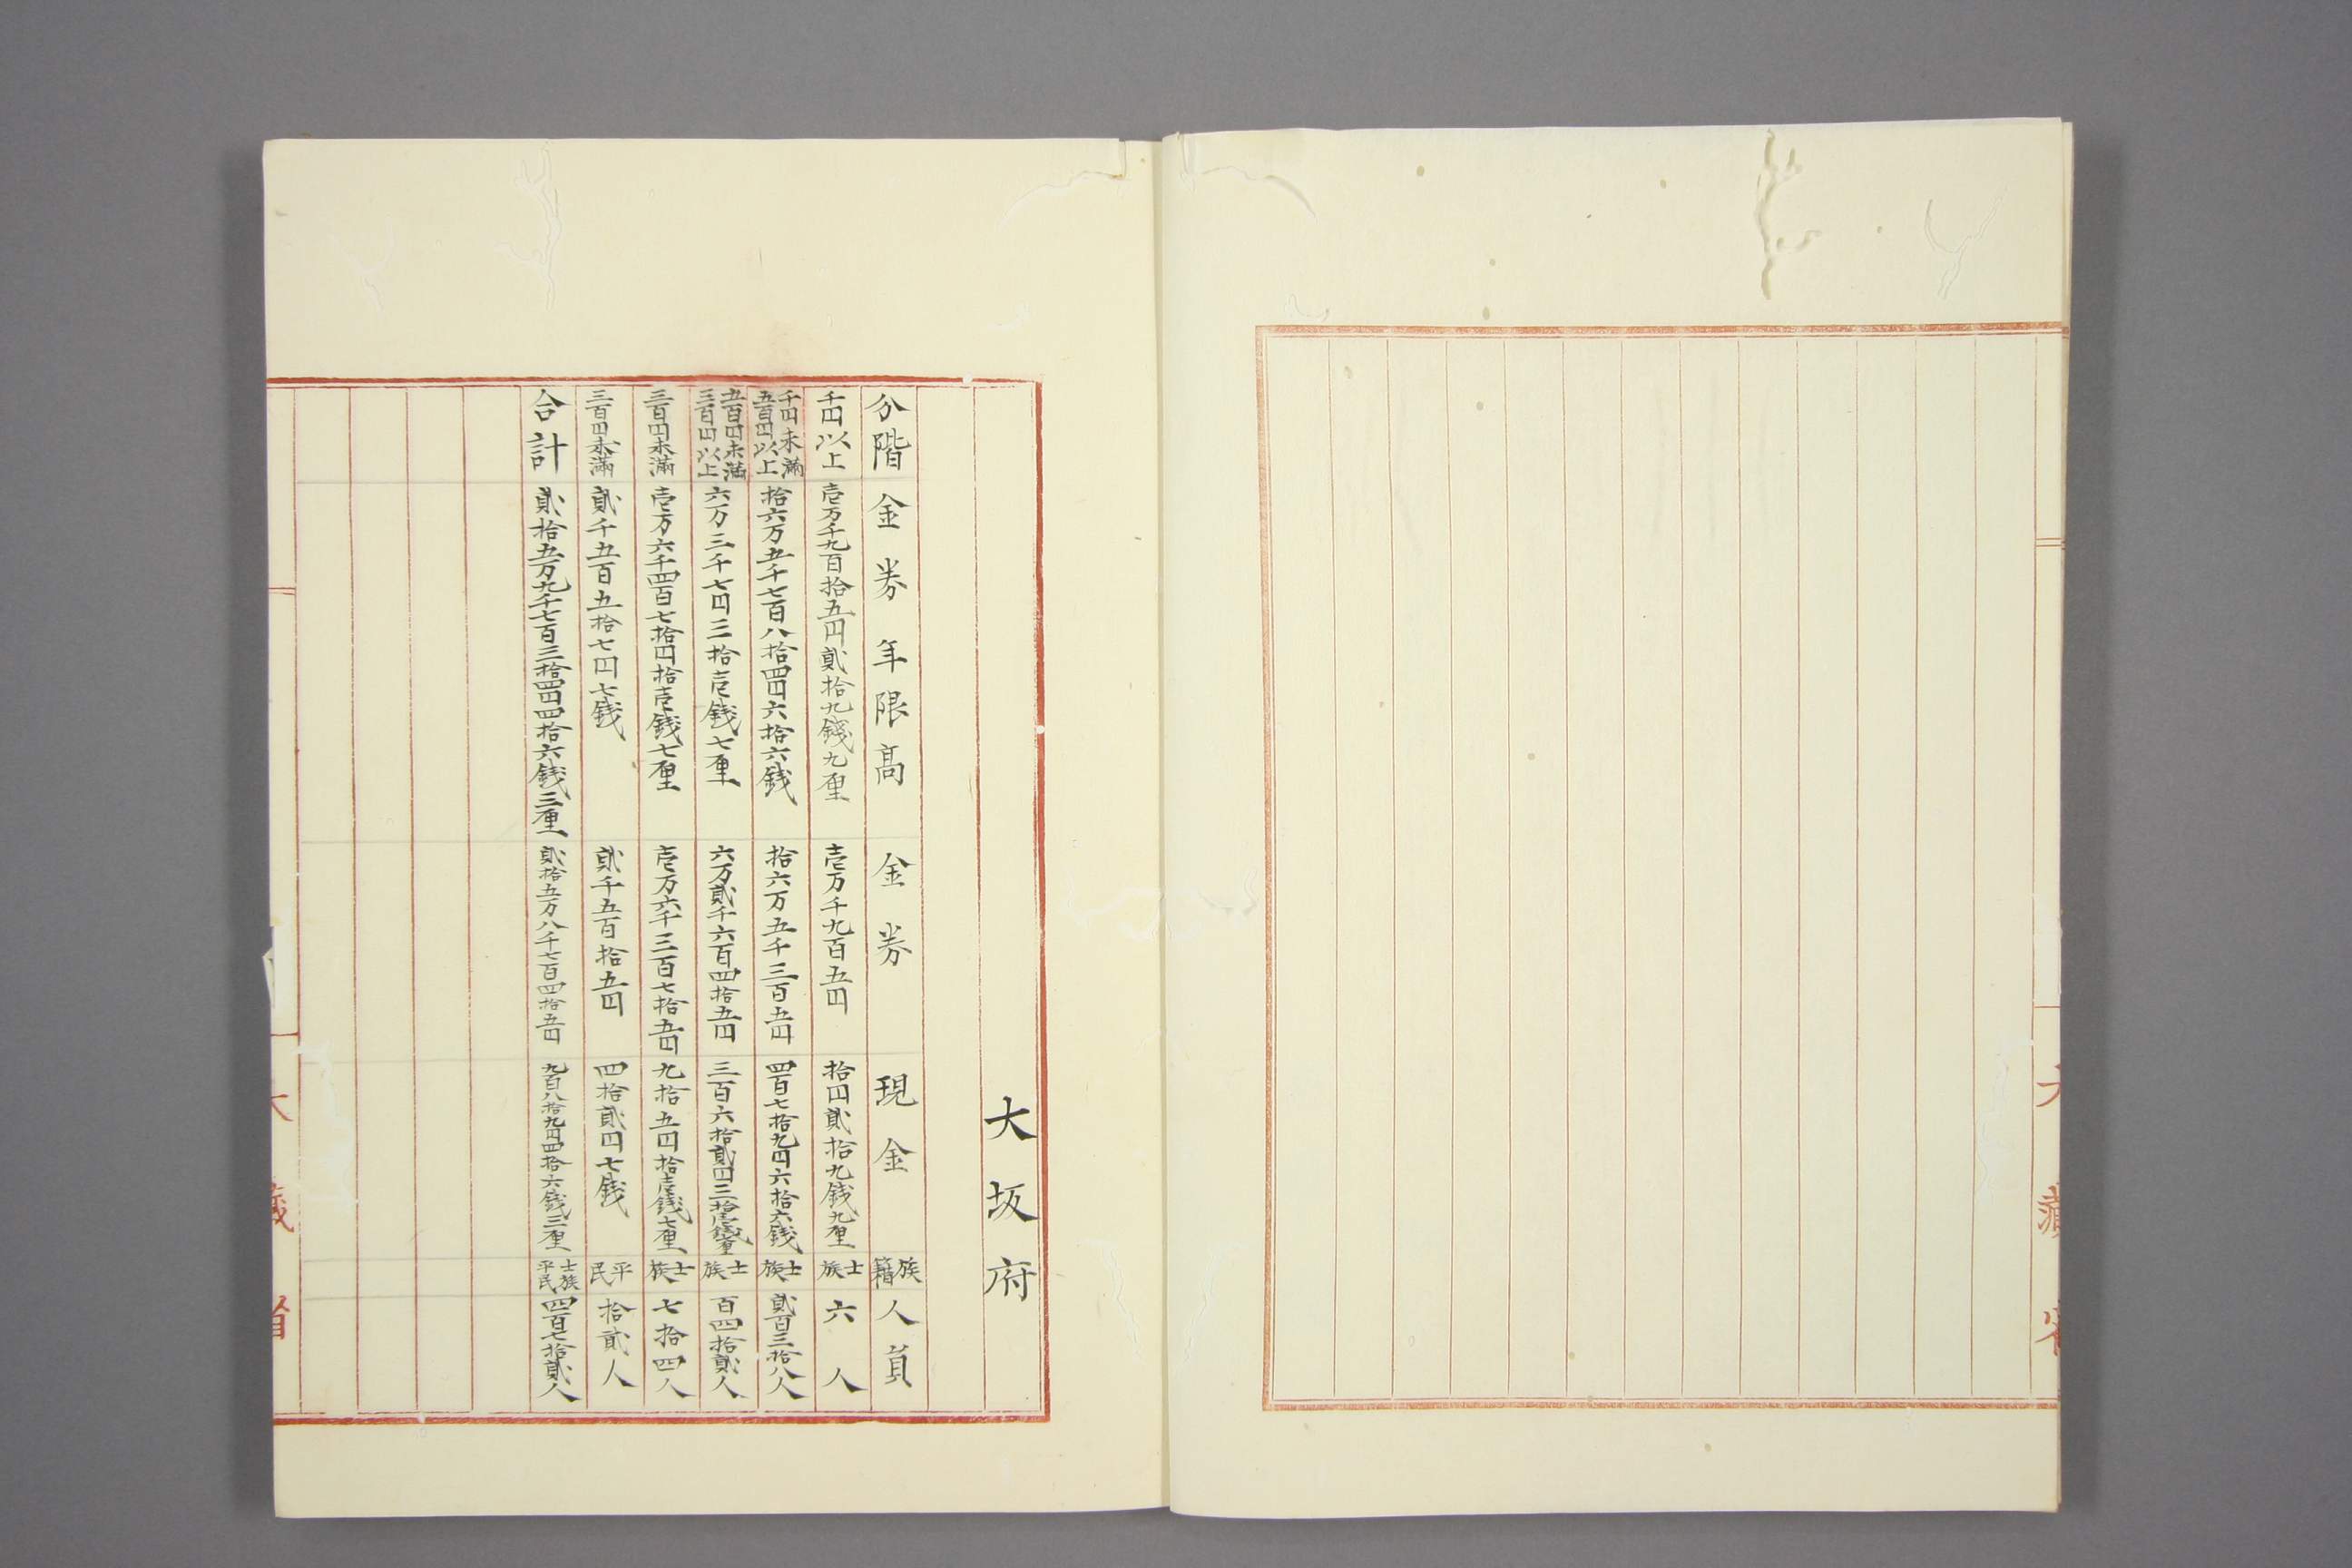 大藏省
大坂府
分階 金券年限高 金券 現金 族籍 人員
千円以上 壱万千九百拾五円貳拾九錢九厘 壱万千九百五円 拾円貳拾九銭九厘 士族 六人
千円未満五百円以上 拾六万五千七百八拾四円六拾六銭 拾六万五千三百五円 四百七拾九円六拾六銭 士族 貳百三拾八人
五百円未満三百円以上 六万三千七円三拾壱銭七厘 六万貳千六百四拾五円 三百六拾貳円三拾壱銭七厘 士族 百四拾貳人
三百円未満 壱万六千四百七拾円拾壱銭七厘 壱万六千三百七拾五円 九拾五円拾壱銭七厘 士族 七拾四人
三百円未満 貳千五百五拾七円七銭 貳千五百拾五円 四拾貳円七銭 平民 拾貳人
合計 貳拾五万九千七百三拾四円四拾六銭三厘 貳拾五万八千七百四拾五円 九百八拾九円四拾六銭三厘 士族平民 四百七拾貳人
大藏省